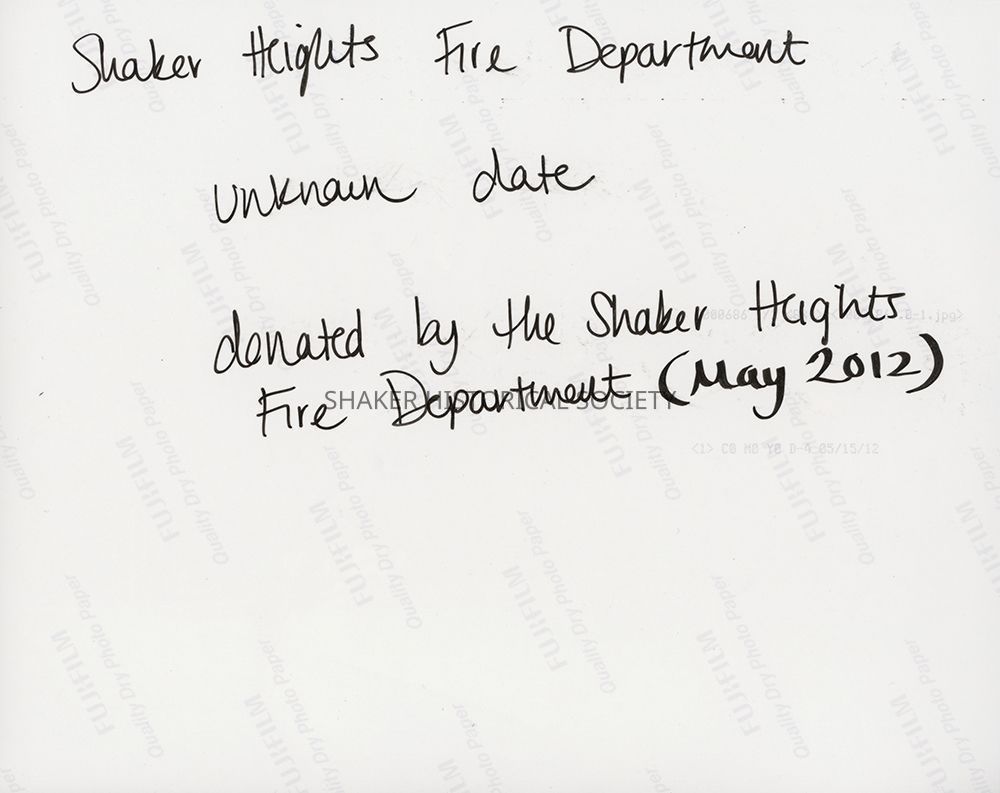 Shaker Heights Fire Department
unknown date
donated by the Shaker Heights
Fire Department (May 2012)
SHAKER HISTORICAL SOCIETY
<1> C0 M0 Y0 D-4 05/15/12
FUJIFILM
Quality Dry Photo Paper